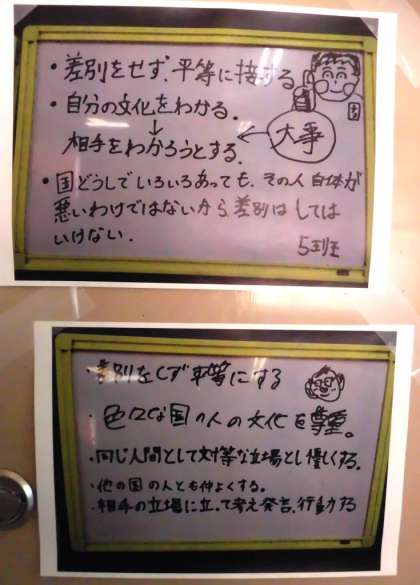 ・差別をせず、平等に接する
・自分の文化をわかる.
↓
相手をわかろうとする.
大事
・国どうしでいろいろあっても、その人自体が
悪いわけではないから差別はしては
いけない.
5班
・差別をせず平等にする
・色々な国の人の文化を尊重。
・同じ人間として対等な立場とし優しくする。
・他の国の人とも仲よくする。
・相手の立場に立って考え発言、行動する